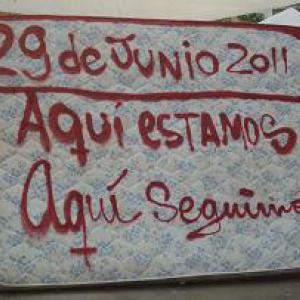 29 de JUNIO 2011
AQUÍ ESTAMOS
Aquí Seguimo